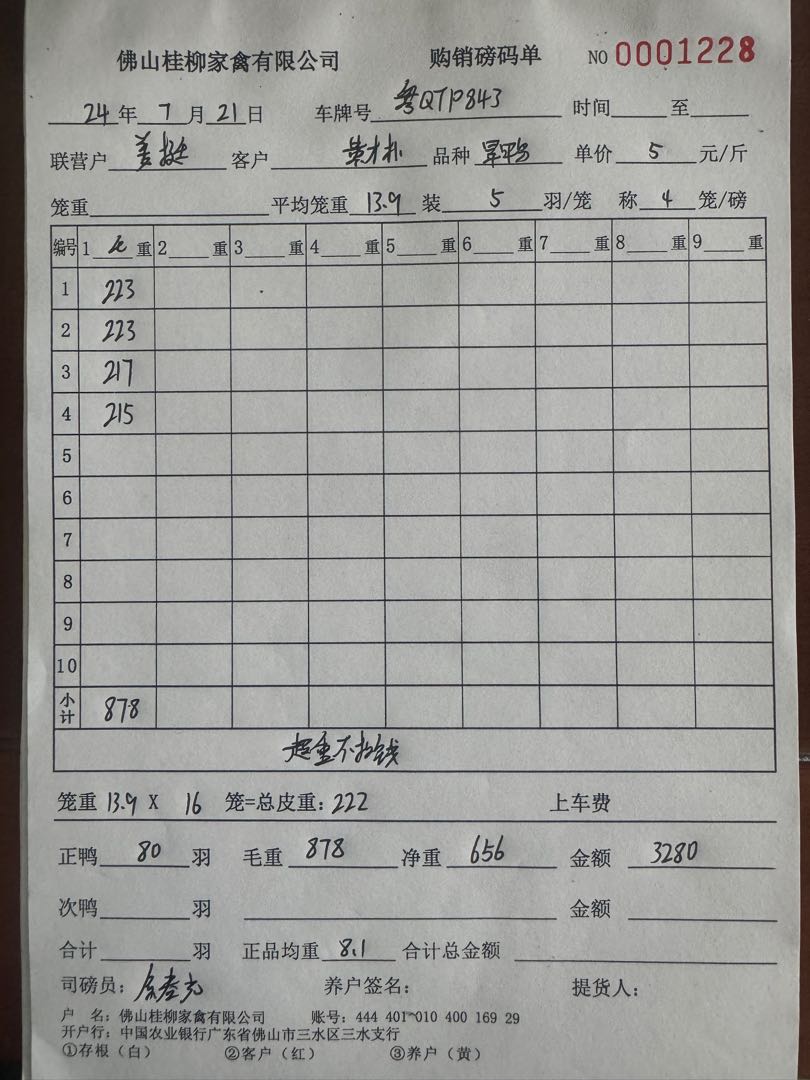 佛山桂柳家禽有限公司 购销磅码单 NO 0001228
24年 7 月 21 日 车牌号 粤QTP843 时间 至
联营户 姜挺 客户 品种 旱鸭 单价 5 元/斤
笼重 平均笼重 13.9 装 5 羽/笼 称 4 笼/磅
编号 1 毛 重 2 重 3 重 4 重 5 重 6 重 7 重 8 重 9 重
1 223
2 223
3 217
4 215
5
6
7
8
9
10
小计 878
超重不扣钱
笼重 13.9 X 16 笼=总皮重: 222 上车费
正鸭 80 羽 毛重 878 净重 656 金额 3280
次鸭 羽 金额
合计 羽 正品均重 8.1 合计总金额
司磅员: 养户签名: 提货人:
户 名: 佛山桂柳家禽有限公司 账号: 444 401 010 400 169 29
开户行: 中国农业银行广东省佛山市三水区三水支行
①存根(白) ②客户(红) ③养户(黄)